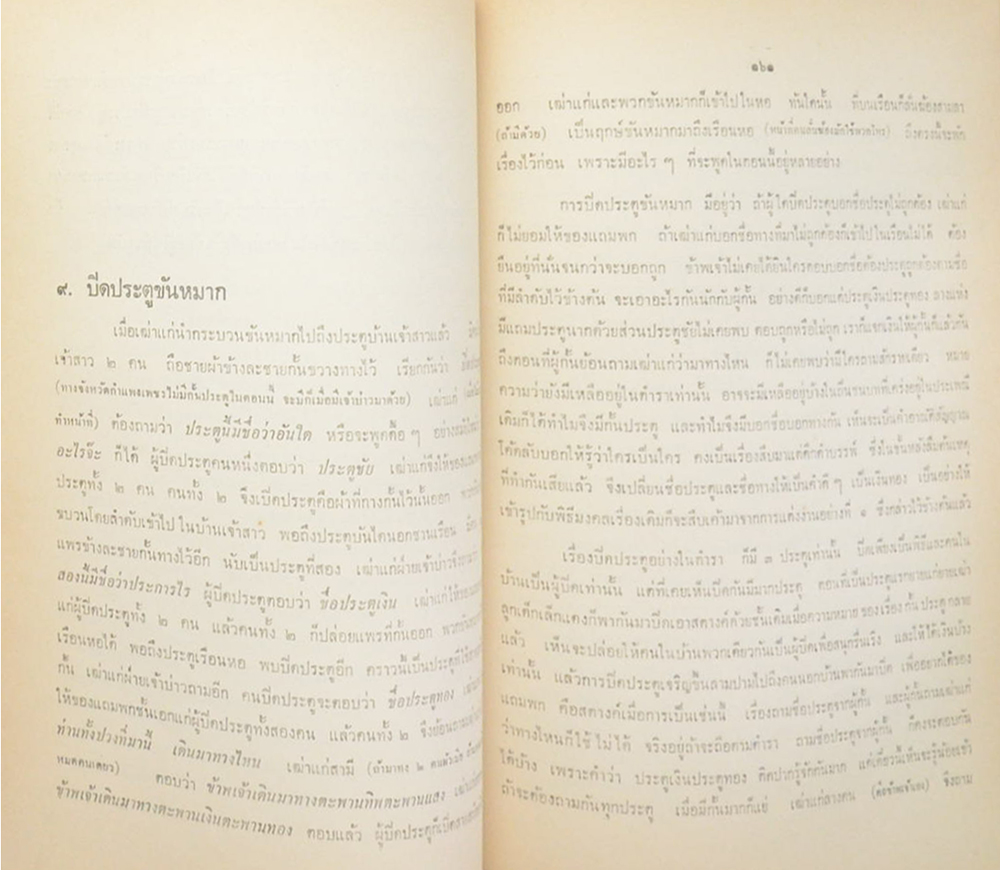 ๙. ปิดประตูขันหมาก
เมื่อเฒ่าแก่นำกระบวนขันหมากไปถึงประตูบ้านเจ้าสาวแล้ว
เจ้าสาว ๒ คน ถือชายผ้าข้างละชายกั้นขวางทางไว้ เรียกกันว่า
(ทางจังหวัดกำแพงเพชรไม่มีกั้นประตูในตอนนี้ จะมีก็เมื่อมีเจ้าบ่าวมาด้วย) เฒ่าแก่
ทำหน้าที่) ต้องถามว่า ประตูนี้มีชื่อว่าอันใด หรือจะพูดคือ ๆ
อะไรจ๊ะ ก็ได้ ผู้ปิดประตูคนหนึ่งตอบว่า ประตูชัย เฒ่าแก่จึงให้ของ
ประตูทั้ง ๒ คน คนทั้ง ๒ จึงเปิดประตูคือผ้าที่ทางกั้นไว้นั้นออก
ขบวนโดยลำดับเข้าไปในบ้านเจ้าสาว พอถึงประตูบันไดนอกชานเรือน
แพรข้างละชายกั้นทางไว้อีก นับเป็นประตูที่สอง เฒ่าแก่ฝ่ายเจ้าบ่าวจึงถามว่า
สองนี้มีชื่อว่าประการไร ผู้ปิดประตูตอบว่า ชื่อประตูเงิน เฒ่าแก่ให้ของ
แก่ผู้ปิดประตูทั้ง ๒ คน แล้วคนทั้ง ๒ ก็ปล่อยแพรที่กั้นออก
เรือนหอได้ พอถึงประตูเรือนหอ พบปิดประตูอีก คราวนี้เป็นประตูที่
กั้น เฒ่าแก่ฝ่ายเจ้าบ่าวถามอีก คนปิดประตูจะตอบว่า ชื่อประตูทอง
ให้ของแถมพกชั้นเอกแก่ผู้ปิดประตูทั้งสองคน แล้วคนทั้ง ๒ จึงย้อนถาม
ท่านทั้งปวงที่มานี้ เดินมาทางไหน เฒ่าแก่สามี (ถ้ามาทาง ๒ คน
หมดคนเดียว) ตอบว่า ข้าพเจ้าเดินมาทางตะพานทิพตะพานแสง
ข้าพเจ้าเดินมาทางตะพานเงินตะพานทอง ตอบแล้ว ผู้ปิดประตูก็เปิด
๑๖๑
ออก เฒ่าแก่และพวกขันหมากก็เข้าไปในหอ ทันใดนั้น ที่บนเรือนก็ลั่นฆ้องสามลา
(ถ้ามีด้วย) เป็นฤกษ์ขันหมากมาถึงเรือนหอ ถึงตรงนี้จะพัก
เรื่องไว้ก่อน เพราะมีอะไร ๆ ที่จะพูดในตอนนี้อยู่หลายอย่าง
การปิดประตูขันหมาก มีอยู่ว่า ถ้าผู้ใดปิดประตูบอกชื่อประตูไม่ถูกต้อง เฒ่าแก่
ก็ไม่ยอมให้ของแถมพก ถ้าเฒ่าแก่บอกชื่อทางที่มาไม่ถูกต้องก็เข้าไปในเรือนไม่ได้ ต้อง
ยืนอยู่ที่นั่นจนกว่าจะบอกถูก ข้าพเจ้าไม่เคยได้ยินใครตอบบอกชื่อต้องประตูถูกต้องตามชื่อ
ที่มีลำดับไว้ข้างต้น จะเอาอะไรกันนักกับผู้กั้น อย่างดีก็บอกแต่ประตูเงินประตูทอง ลางแห่ง
มีแถมประตูนากด้วยส่วนประตูชัยไม่เคยพบ ตอบถูกหรือไม่ถูก เราก็แจกเงินให้ผู้กั้นก็แล้วกัน
ถึงตอนที่ผู้กั้นย้อนถามเฒ่าแก่ว่ามาทางไหน ก็ไม่เคยพบว่ามีใครถามสักรายเดียว หมาย
ความว่ายังมีเหลืออยู่ในตำราเท่านั้น อาจจะมีเหลืออยู่บ้างในถิ่นชนบทที่เคร่งอยู่ในประเพณี
เดิมก็ได้ทำไมจึงมีกั้นประตู และทำไมจึงมีบอกชื่อบอกทางกัน เห็นจะเป็นคำอาณัติสัญญาณ
โต้กลับบอกให้รู้ว่าใครเป็นใคร คงเป็นเรื่องสืบมาแต่ดึกดำบรรพ์ ซึ่งในชั้นหลังลืมต้นเหตุ
ที่ทำกันเสียแล้ว จึงเปลี่ยนชื่อประตูและชื่อทางให้เป็นคำดี ๆ เป็นเงินทอง เป็นอย่างให้
เข้ารูปกับพิธีมงคลเรื่องเดิมก็จะสืบเค้ามาจากการแต่งงานอย่างที่ ๑ ซึ่งกล่าวไว้ข้างต้นแล้ว
เรื่องปิดประตูอย่างในตำรา ก็มี ๓ ประตูเท่านั้น ปิดเพียงเป็นพิธีและคนใน
บ้านเป็นผู้ปิดเท่านั้น แต่ที่เคยเห็นปิดกันมีมากประตู
ลูกเด็กเล็กแดงก็พากันมาปิดเอาสตางค์ด้วยชั้นเดิมเมื่อความหมายของเรื่องกั้นประตูกลาย
แล้ว เห็นจะปล่อยให้คนในบ้านพวกเดียวกันเป็นผู้ปิดเพื่อสนุกรื่นเริง และให้ได้เงินบ้าง
เท่านั้น แล้วการปิดประตูเจริญขึ้นลามปามไปถึงคนนอกบ้านพากันมาปิด เพื่ออยากได้ของ
แถมพก คือสตางค์เมื่อการเป็นเช่นนี้ เรื่องถามชื่อประตูจากผู้กั้น และผู้กั้นถามเฒ่าแก่
ว่าทางไหนก็ใช้ไม่ได้ จริงอยู่ถ้าจะถือตามตำรา ถามชื่อประตูจากผู้กั้น ก็คงจะตอบกัน
ได้บ้าง เพราะคำว่า ประตูเงินประตูทอง ติดปากรู้จักกันมาก แต่เดี๋ยวนี้เห็นจะรู้น้อยแล้ว
ถ้าจะต้องถามกันทุกประตู เมื่อมีกั้นมากก็แย่ เฒ่าแก่ลางคน (ดั่งข้าพเจ้าเอง) จึงถาม